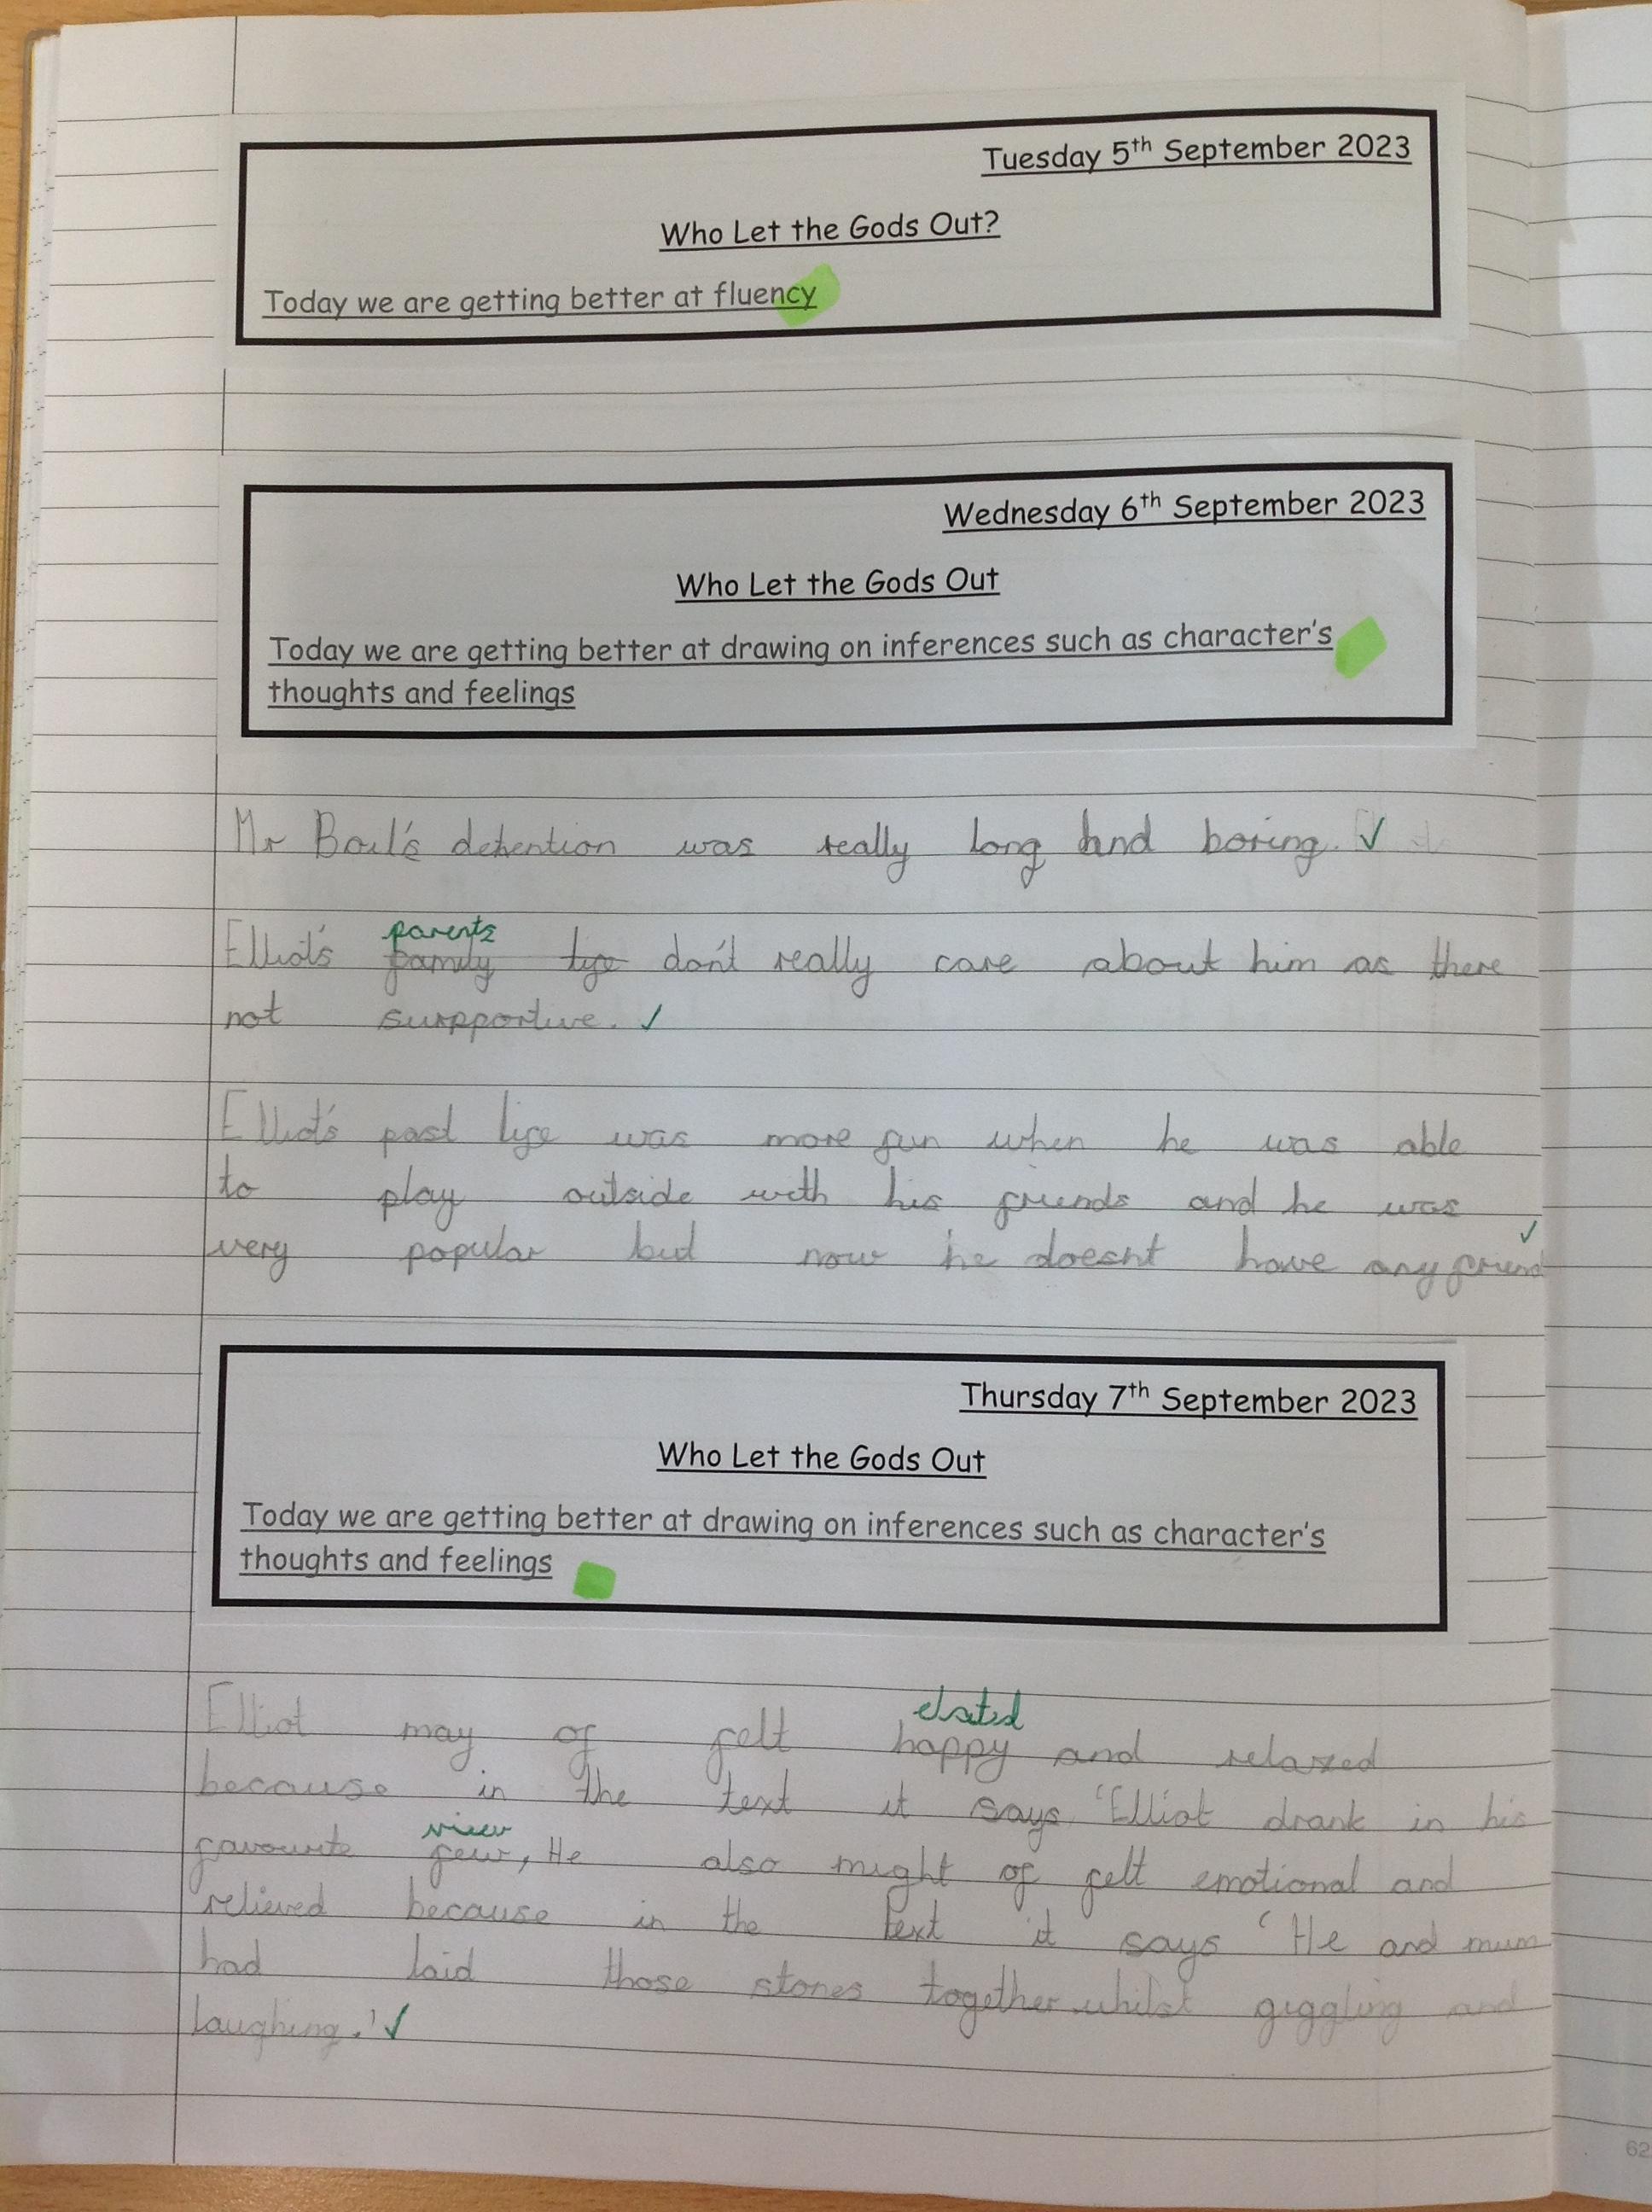 Tuesday 5th September 2023
Who Let the Gods Out?
Today we are getting better at fluency
Wednesday 6th September 2023
Who Let the Gods Out
Today we are getting better at drawing on inferences such as character's
thoughts and feelings
Mr Boil's detention was really long and boring. ✓
parents
Elliot's family life don't really care about him as there
not suxpportive. ✓
Elliot's past life was more fun when he was able
to play outside with his friends and he was
very popular but now he doesnt have any friend ✓
Thursday 7th September 2023
Who Let the Gods Out
Today we are getting better at drawing on inferences such as character's
thoughts and feelings
elated
Elliot may of felt happy and relaxed
because in the text it says 'Elliot drank in his
view
favourite few, He also might of felt emotional and
relieved because in the text it says 'He and mum
had laid those stones together whilst giggling and
laughing.' ✓
62